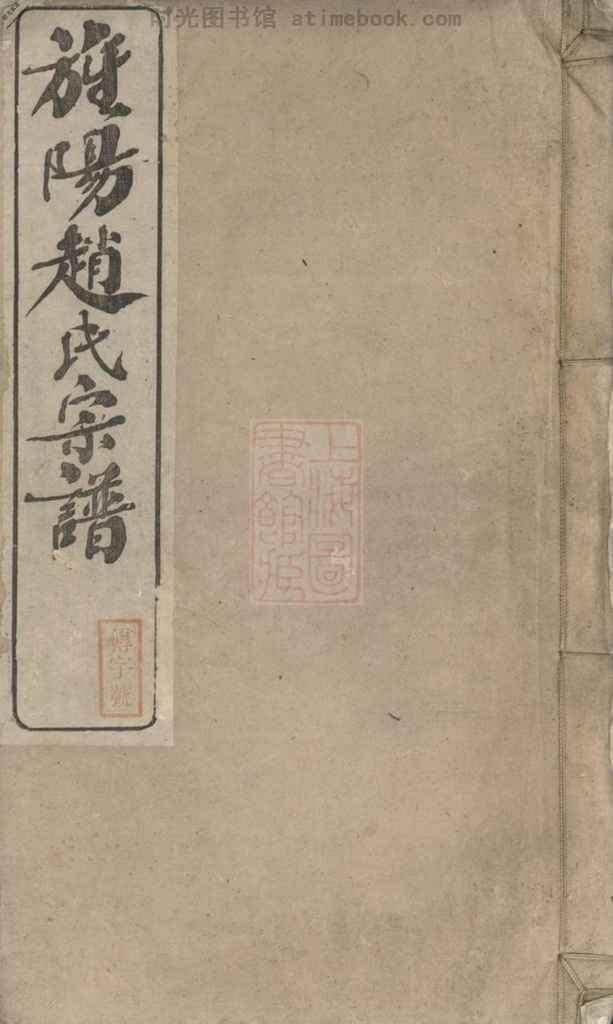 时光图书馆 atimebook.com
旌陽趙氏宗譜
上海圖
書館藏
字號